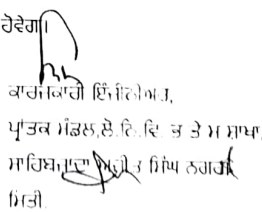 ਹੋਵੇਗਾ।
ਕਾਰਜਕਾਰੀ ਇੰਜੀਨੀਅਰ,
ਪ੍ਰਾਂਤਕ ਮੰਡਲ,ਲੋ.ਨਿ.ਵਿ. ਭ ਤੇ ਮ ਸ਼ਾਖਾ,
ਸਾਹਿਬਜ਼ਾਦਾ ਅਜੀਤ ਸਿੰਘ ਨਗਰ।
ਮਿਤੀ